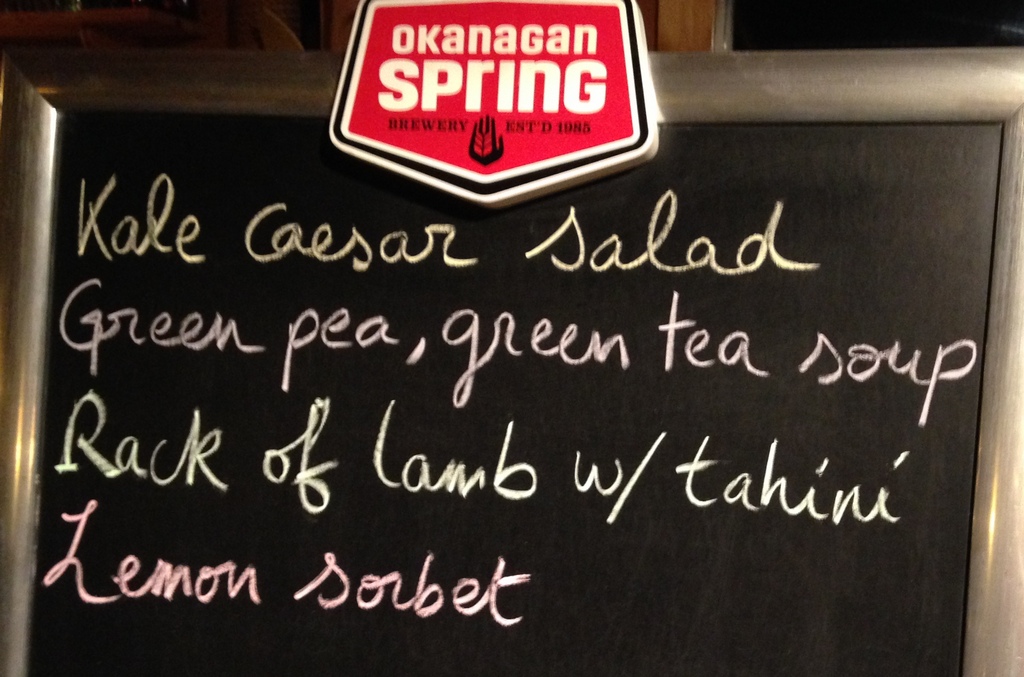 OKanagan
SPrinG
BREWERY EST'D 1985
Kale Caesar Salad
Green pea, green tea soup
Rack of lamb w/ tahini
Lemon sorbet